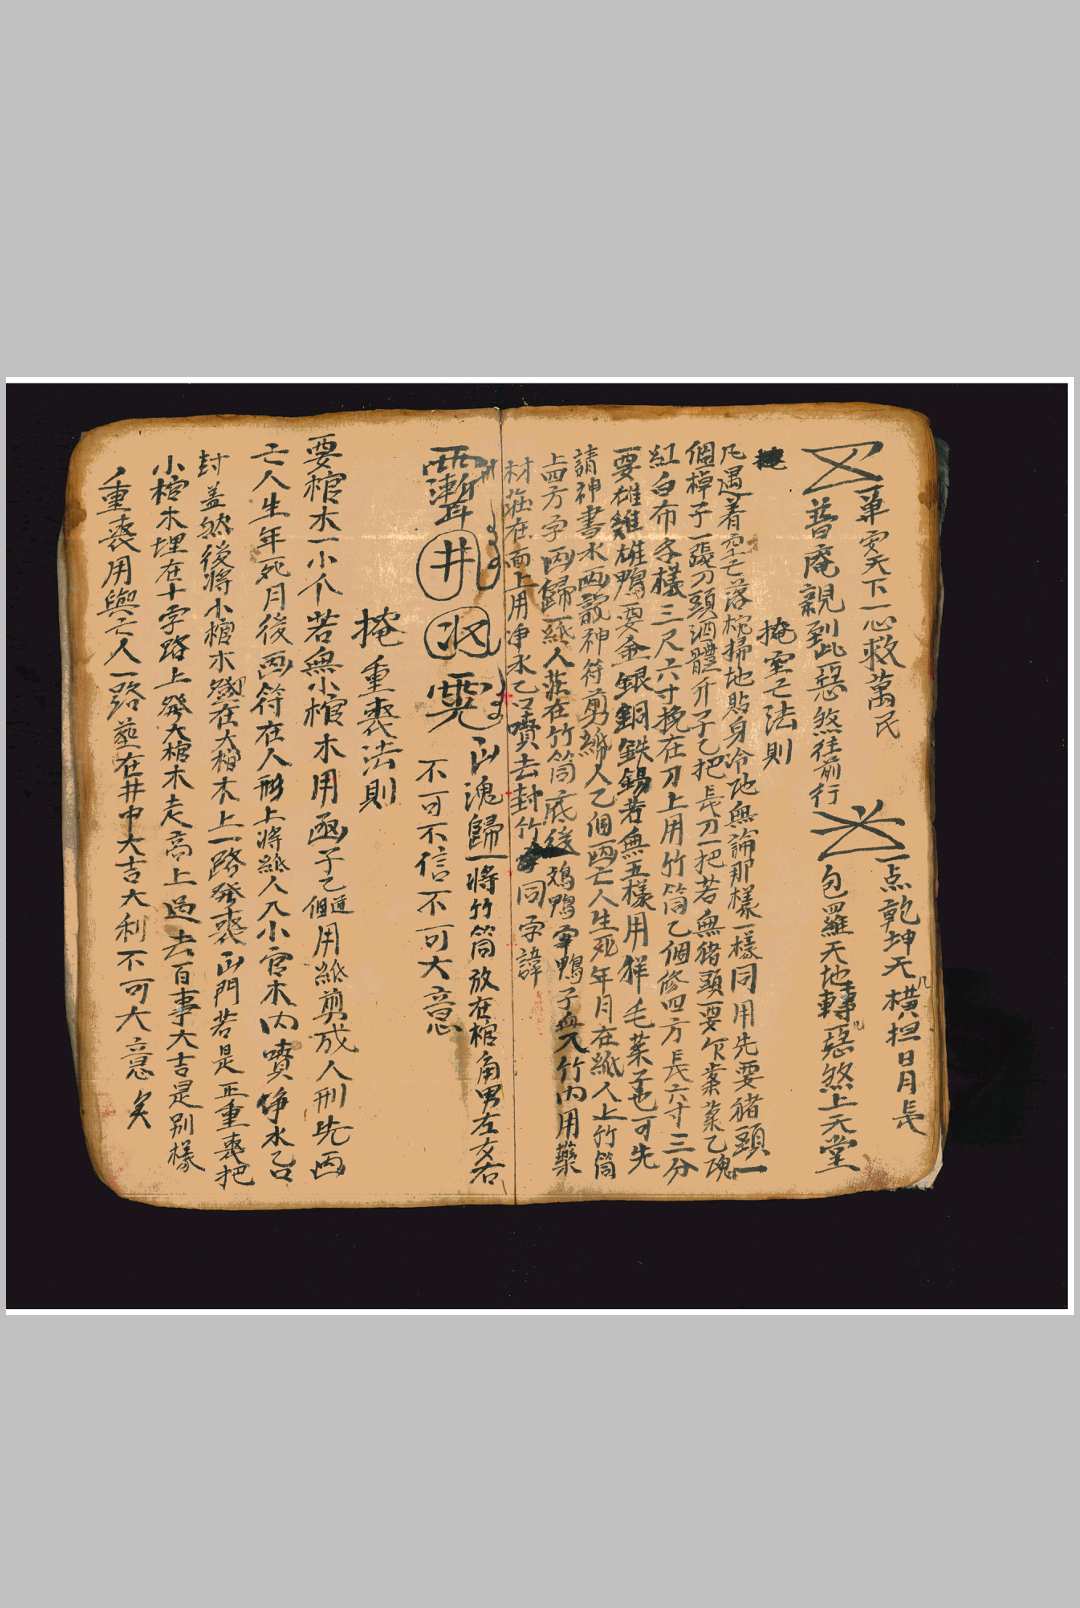 萆灾天下一心救萬民
一点乾坤天橫担日月長
普庵親到此惡煞往前行
包羅天地轉惡煞上天堂
掩空亡法則
凡遇着空亡落枕掃地貼身冷地無論那樣一樣同用先要豬頭一
個棹子一張刀頭酒醴升子乙把長刀一把若無豬頭要
紅白布子樣三尺六寸挽在刀上用竹筒乙個修四方長六寸三分
要雄雞雄鴨要金銀銅鉄錫若無五樣用猩毛菜子也可先
請神書水画諱神符剪紙人乙個画亡人生死年月在紙人上竹筒
上四方字画歸一紙人莊在竹筒底後鴉鴨宰鴨子血入竹內用藥
材莊在面上用净水乙口噴去封竹同字諱
凶魂歸一將竹筒放在棺角男左女右
不可不信不可大意
掩重喪法則
要棺木一小个若無小棺木用函子乙個用紙剪成人刑先画
亡人生年死月後画符在人形上將紙人入小官木內噴净水乙口
封盖然後將小棺木在大棺木上一路發喪出門若是正重喪把
小棺木埋在十字路上發大棺木走高上過去百事大吉是別樣
重喪用與亡人一路塟在井中大吉大利不可大意矣